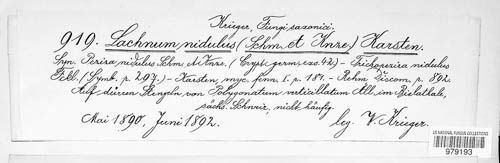 Krieger, Fungi saxonici.
919. Lachnum nidulus (Schm. et Knze.) Karsten.
Syn. Peziza nidulus Schm. et Knze. (Crypt. germ. exs. 72.) - Trichopeziza nidulus
Fckl. (Symb. p. 297.) - Karsten, myc. fenn. I. p. 181. - Rehm Discom. p. 892.
Auf dürren Stengeln von Polygonatum verticillatum All. im Bielathale,
sächs. Schweiz, nicht häufig.
Mai 1890, Juni 1892. leg. W. Krieger.
US NATIONAL FUNGUS COLLECTIONS
979193